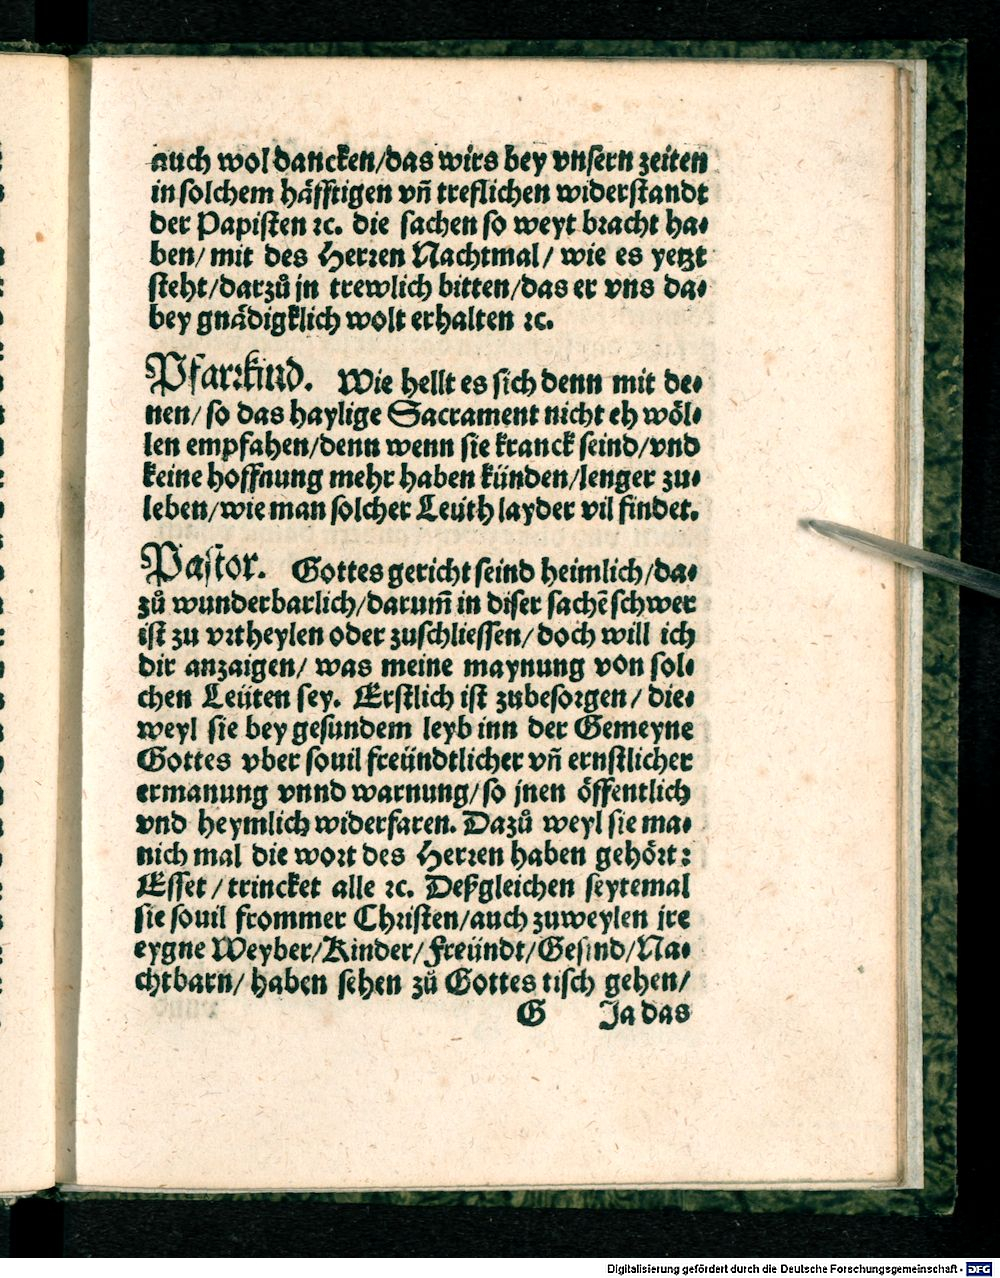 auch wol dancken/das wirs bey vnsern zeiten
in solchem häfftigen vñ treflichen widerstandt
der Papisten ꝛc. die sachen so weyt bracht ha⸗
ben/ mit des Herren Nachtmal/ wie es yetzt
steht/darzů jn trewlich bitten/das er vns da⸗
bey gnädigklich wolt erhalten ꝛc.
Pfarrkind. Wie hellt es sich denn mit de⸗
nen/ so das haylige Sacrament nicht eh wöl⸗
len empfahen/denn wenn sie kranck seind/vnd
keine hoffnung mehr haben künden/lenger zu⸗
leben/wie man solcher Leüth layder vil findet.
Pastor. Gottes gericht seind heimlich/da⸗
zů wunderbarlich/darum̃ in diser sachẽ schwer
ist zu vrtheylen oder zuschliessen/doch will ich
dir anzaigen/ was meine maynung von sol⸗
chen Leüten sey. Erstlich ist zubesorgen/ die⸗
weyl sie bey gesundem leyb inn der Gemeyne
Gottes vber souil freündtlicher vñ ernstlicher
ermanung vnnd warnung/so jnen öffentlich
vnd heymlich widerfaren. Dazů weyl sie ma⸗
nich mal die wort des Herren haben gehört:
Esset/trincket alle ꝛc. Deßgleichen seytemal
sie souil frommer Christen/auch zuweylen jre
eygne Weyber/Kinder/Freündt/Gesind/Na⸗
chtbarn/ haben sehen zů Gottes tisch gehen/
G Ja das
Digitalisierung gefördert durch die Deutsche Forschungsgemeinschaft - DFG